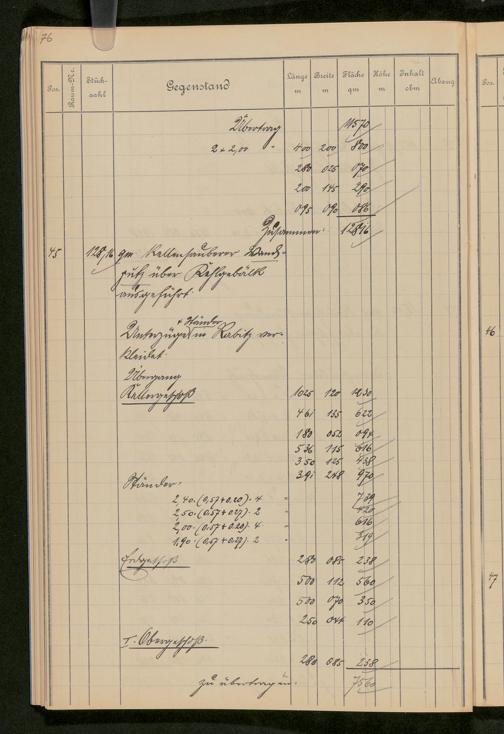 76
Pos. Raum-Nr. Stückzahl Gegenstand Länge m Breite m Fläche qm Höhe m Inhalt cbm Abzug
Übertrag 11570
2 × 2,00 " 400 200 800
280 025 070
200 145 290
095 090 086
Zusammen: 12816
45 128,16 qm Kellensauberer Wand-
putz über Kehlgebälk
ausgeführt.
+ Ständer
Unterzüge in Rabitz ver-
kleidet.
Übergang
Kellergeschoß 1025 120 1230
461 135 622
180 052 094
536 115 616
350 125 438
391 248 970
Ständer:
2,40 . (0,57 + 0.20) . 4 " 739
2,50 . (0,57 + 0,27) . 2 " 420
2,00 . (0,57 + 0,20) . 4 " 616
1,90 . (0,57 + 0,27) . 2 " 319
Erdgeschoß 280 085 238
500 112 560
500 070 350
250 044 110
I. Obergeschoß.
280 085 238
zu übertragen: 7560
Pos.
46
47